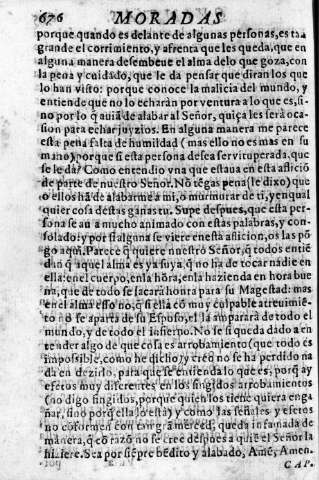 676 MORADAS
porque quando es delante de algunas personas, es tã
grande el corrimiento, y afrenta que les queda, que en
alguna manera desembeue el alma delo que goza, con
la pena y cuidado, que le da pensar que diran los que
lo han visto: porque conoce la malicia del mundo, y
entiende que no lo echarán por ventura a lo que es, si-
no por lo q̃ auiã de alabar al Señor, quiça les será oca-
sion para echar juyzios. En alguna manera me parece
esta pena falta de humildad (mas ello no es mas en su
mano) porque si esta persona dessea ser vituperada, que
se le dá? Como entendio vna que estaua en esta aflició
de parte de nuestro Señor. No tẽgas pena (le dixo) que
o ellos hã de alabarme a mi, o murmurar de ti, y en qual
quier cosa destas ganas tu. Supe despues, que esta per-
sona se auia mucho animado con estas palabras, y con-
solado: y por si alguna se viere en esta aflicion, os las põ
go aqui. Parece q̃ quiere nuestro Señor, q̃ todos entiẽ
dan q̃ aquel alma es ya suya, q̃ no ha de tocar nadie en
ella: en el cuerpo, en la hõra, en la hazienda en hora bue
na, que de todo se sacará hõra para su Magestad: mas
en el alma esso no, q̃ si ella cõ muy culpable atreuimiẽ-
to no se aparta de su Esposo, el la amparará de todo el
mundo, y de todo el infierno. No se si queda dado a en
tender algo de que cosa es arrobamiento (que todo es
impossible, como he dicho) y creo no se ha perdido na
da en dezirlo, para que se entienda lo que es, porq̃ ay
efetos muy diferentes en los fingidos arrobamientos
(no digo fingidos, porque quien los tiene quiera enga
ñar, sino porq̃ ella lo está) y como las señales y efetos
no conformen con tan grã merced, queda infamada de
manera, q̃ cõ razõ no se cree despues a quiẽ el Señor la
hiziere. Sea por siẽpre bẽdito y alabado, Amẽ, Amen.
CAP.